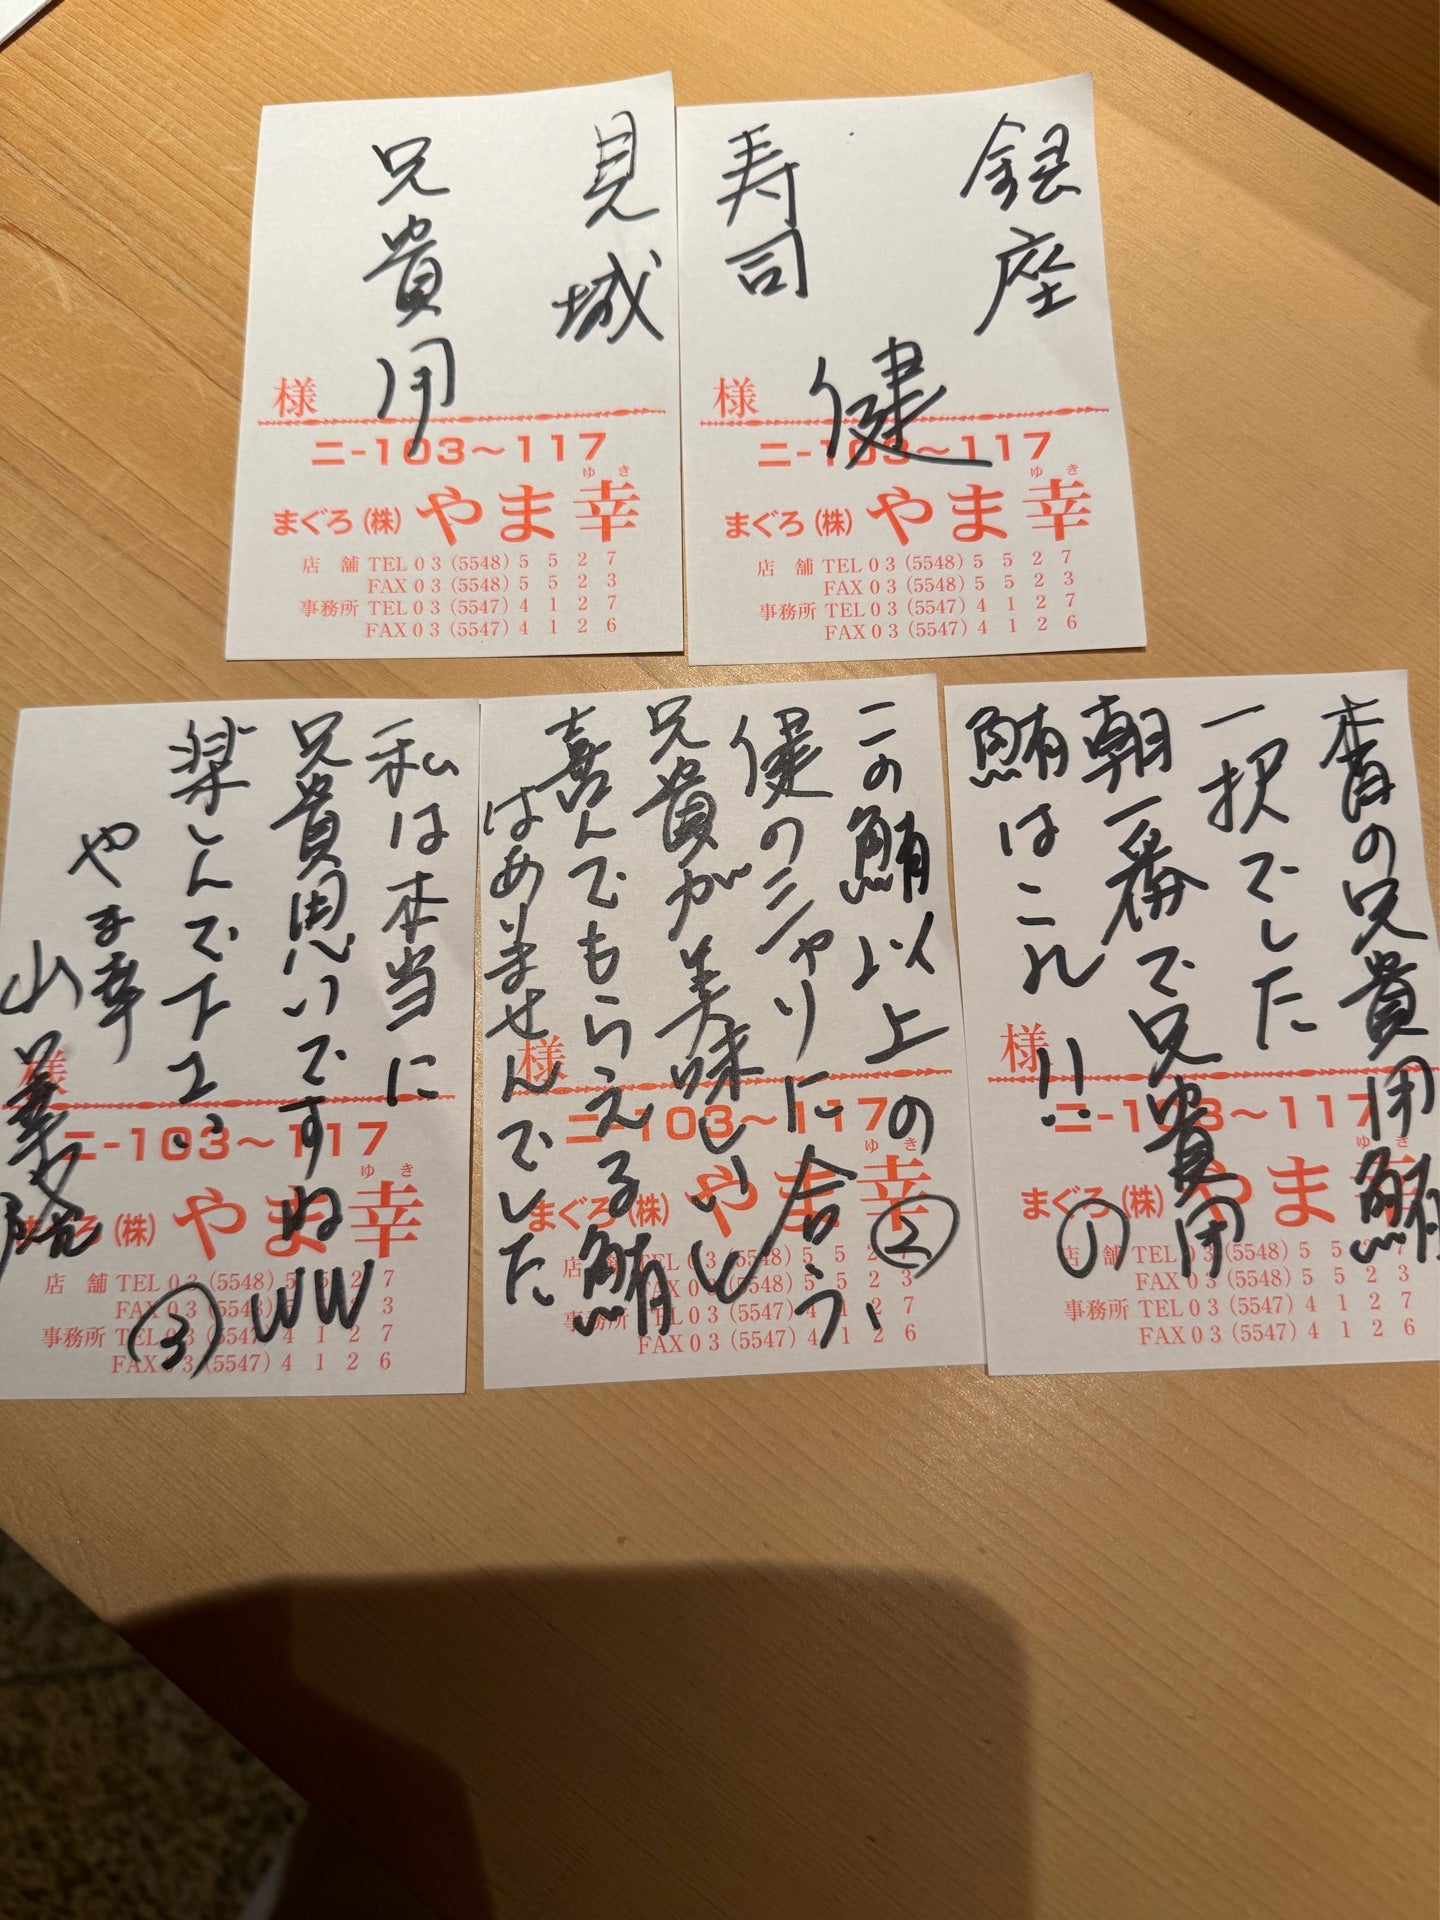 銀座
寿司
健
様
ニ-103〜117
ゆき
まぐろ(株)やま幸
店舗 TEL03(5548)5527
FAX03(5548)5523
事務所 TEL03(5547)4127
FAX03(5547)4126
見城
兄貴用
様
ニ-103〜117
ゆき
まぐろ(株)やま幸
店舗 TEL03(5548)5527
FAX03(5548)5523
事務所 TEL03(5547)4127
FAX03(5547)4126
の兄貴用鮪
一択でした
朝一番で兄貴用
鮪はこれ!!
①
様
ニ-103〜117
ゆき
まぐろ(株)やま幸
店舗 TEL03(5548)5527
FAX03(5548)5523
事務所 TEL03(5547)4127
FAX03(5547)4126
この鮪以上の
②
健のシャリに合う、
兄貴が美味しいし
喜んでもらえる鮪
はありませんでした
様
ニ-103〜117
ゆき
まぐろ(株)やま幸
店舗 TEL03(5548)5527
FAX03(5548)5523
事務所 TEL03(5547)4127
FAX03(5547)4126
私は本当に
兄貴思いですねWW
楽しんで下さい
③
やま幸
山口幸隆
様
ニ-103〜117
ゆき
まぐろ(株)やま幸
店舗 TEL03(5548)5527
FAX03(5548)5523
事務所 TEL03(5547)4127
FAX03(5547)4126